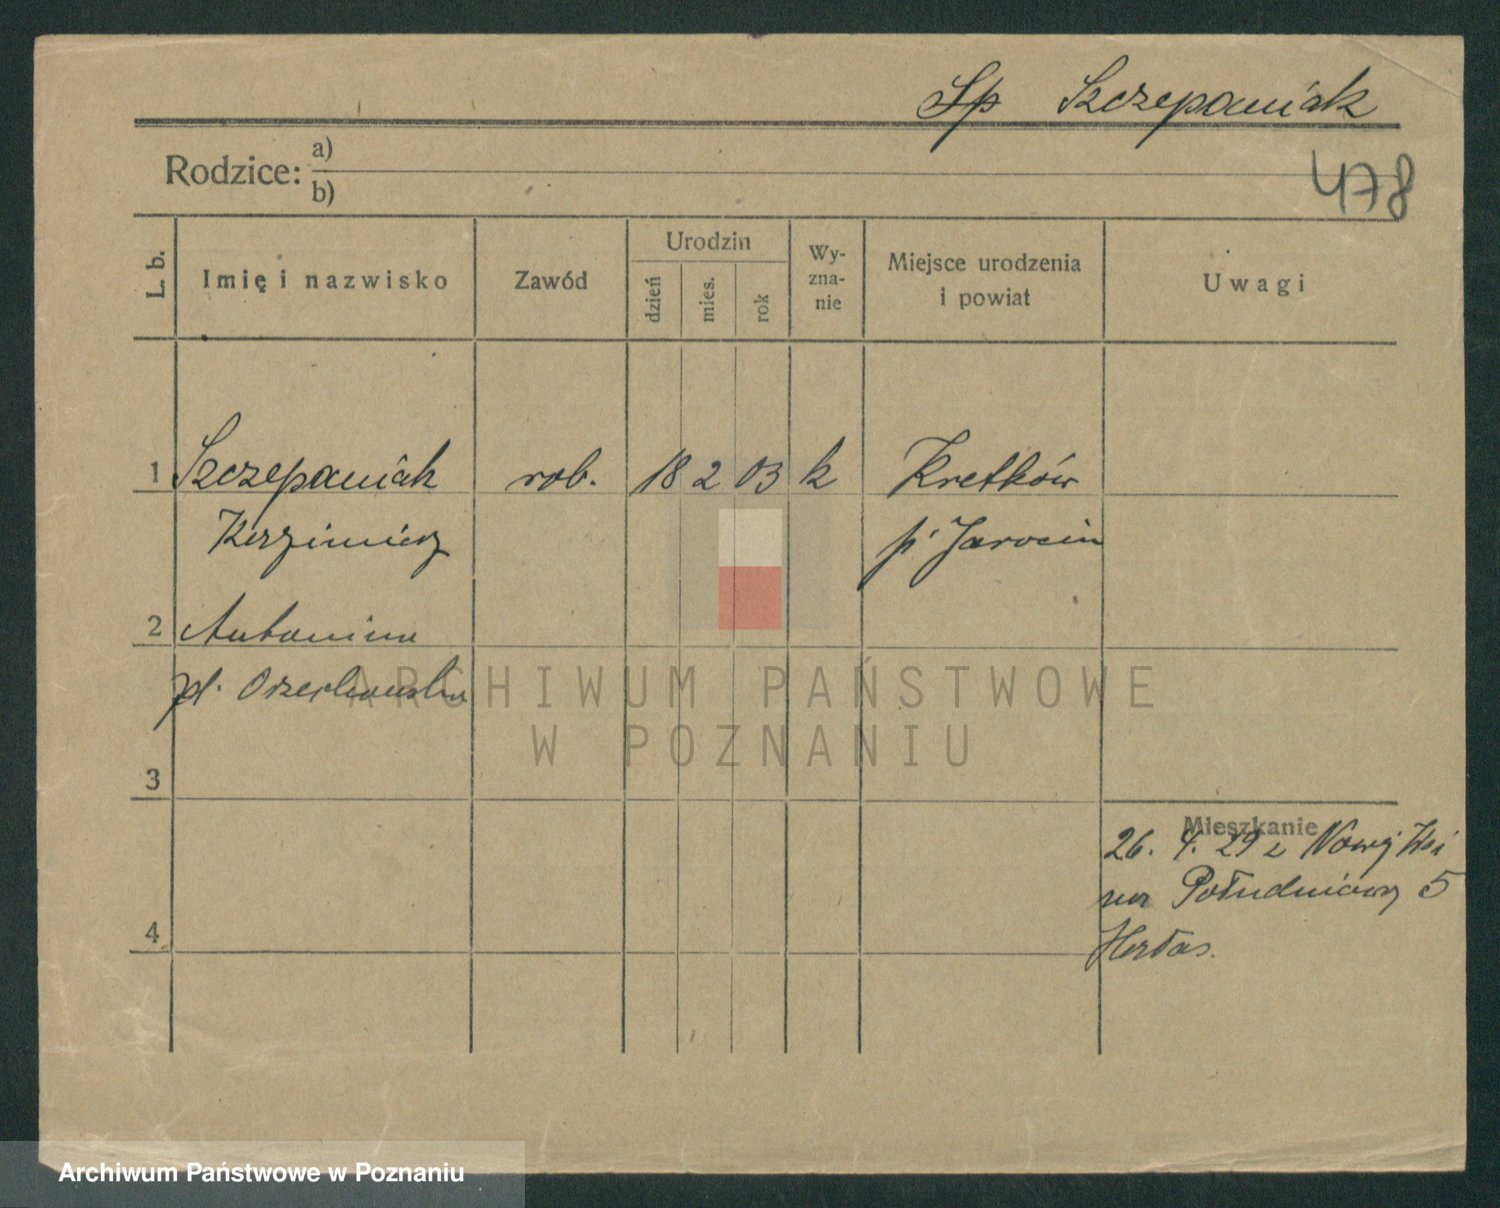 Sp Szczepaniak
Rodzice: a)
b)
478
L. b.
Imię i nazwisko
Zawód
Urodzin
dzień
mies.
rok
Wy-
zna-
nie
Miejsce urodzenia
i powiat
Uwagi
1 Szczepaniak rob. 18 2 03 k Kretków
Kazimierz p. Jarocin
2 Antonina
zd. Orzechowska
ARCHIWUM PAŃSTWOWE
W POZNANIU
3
Mieszkanie
26. 4. 29 z Nowej Wsi
na Południową 5
4
Archiwum Państwowe w Poznaniu